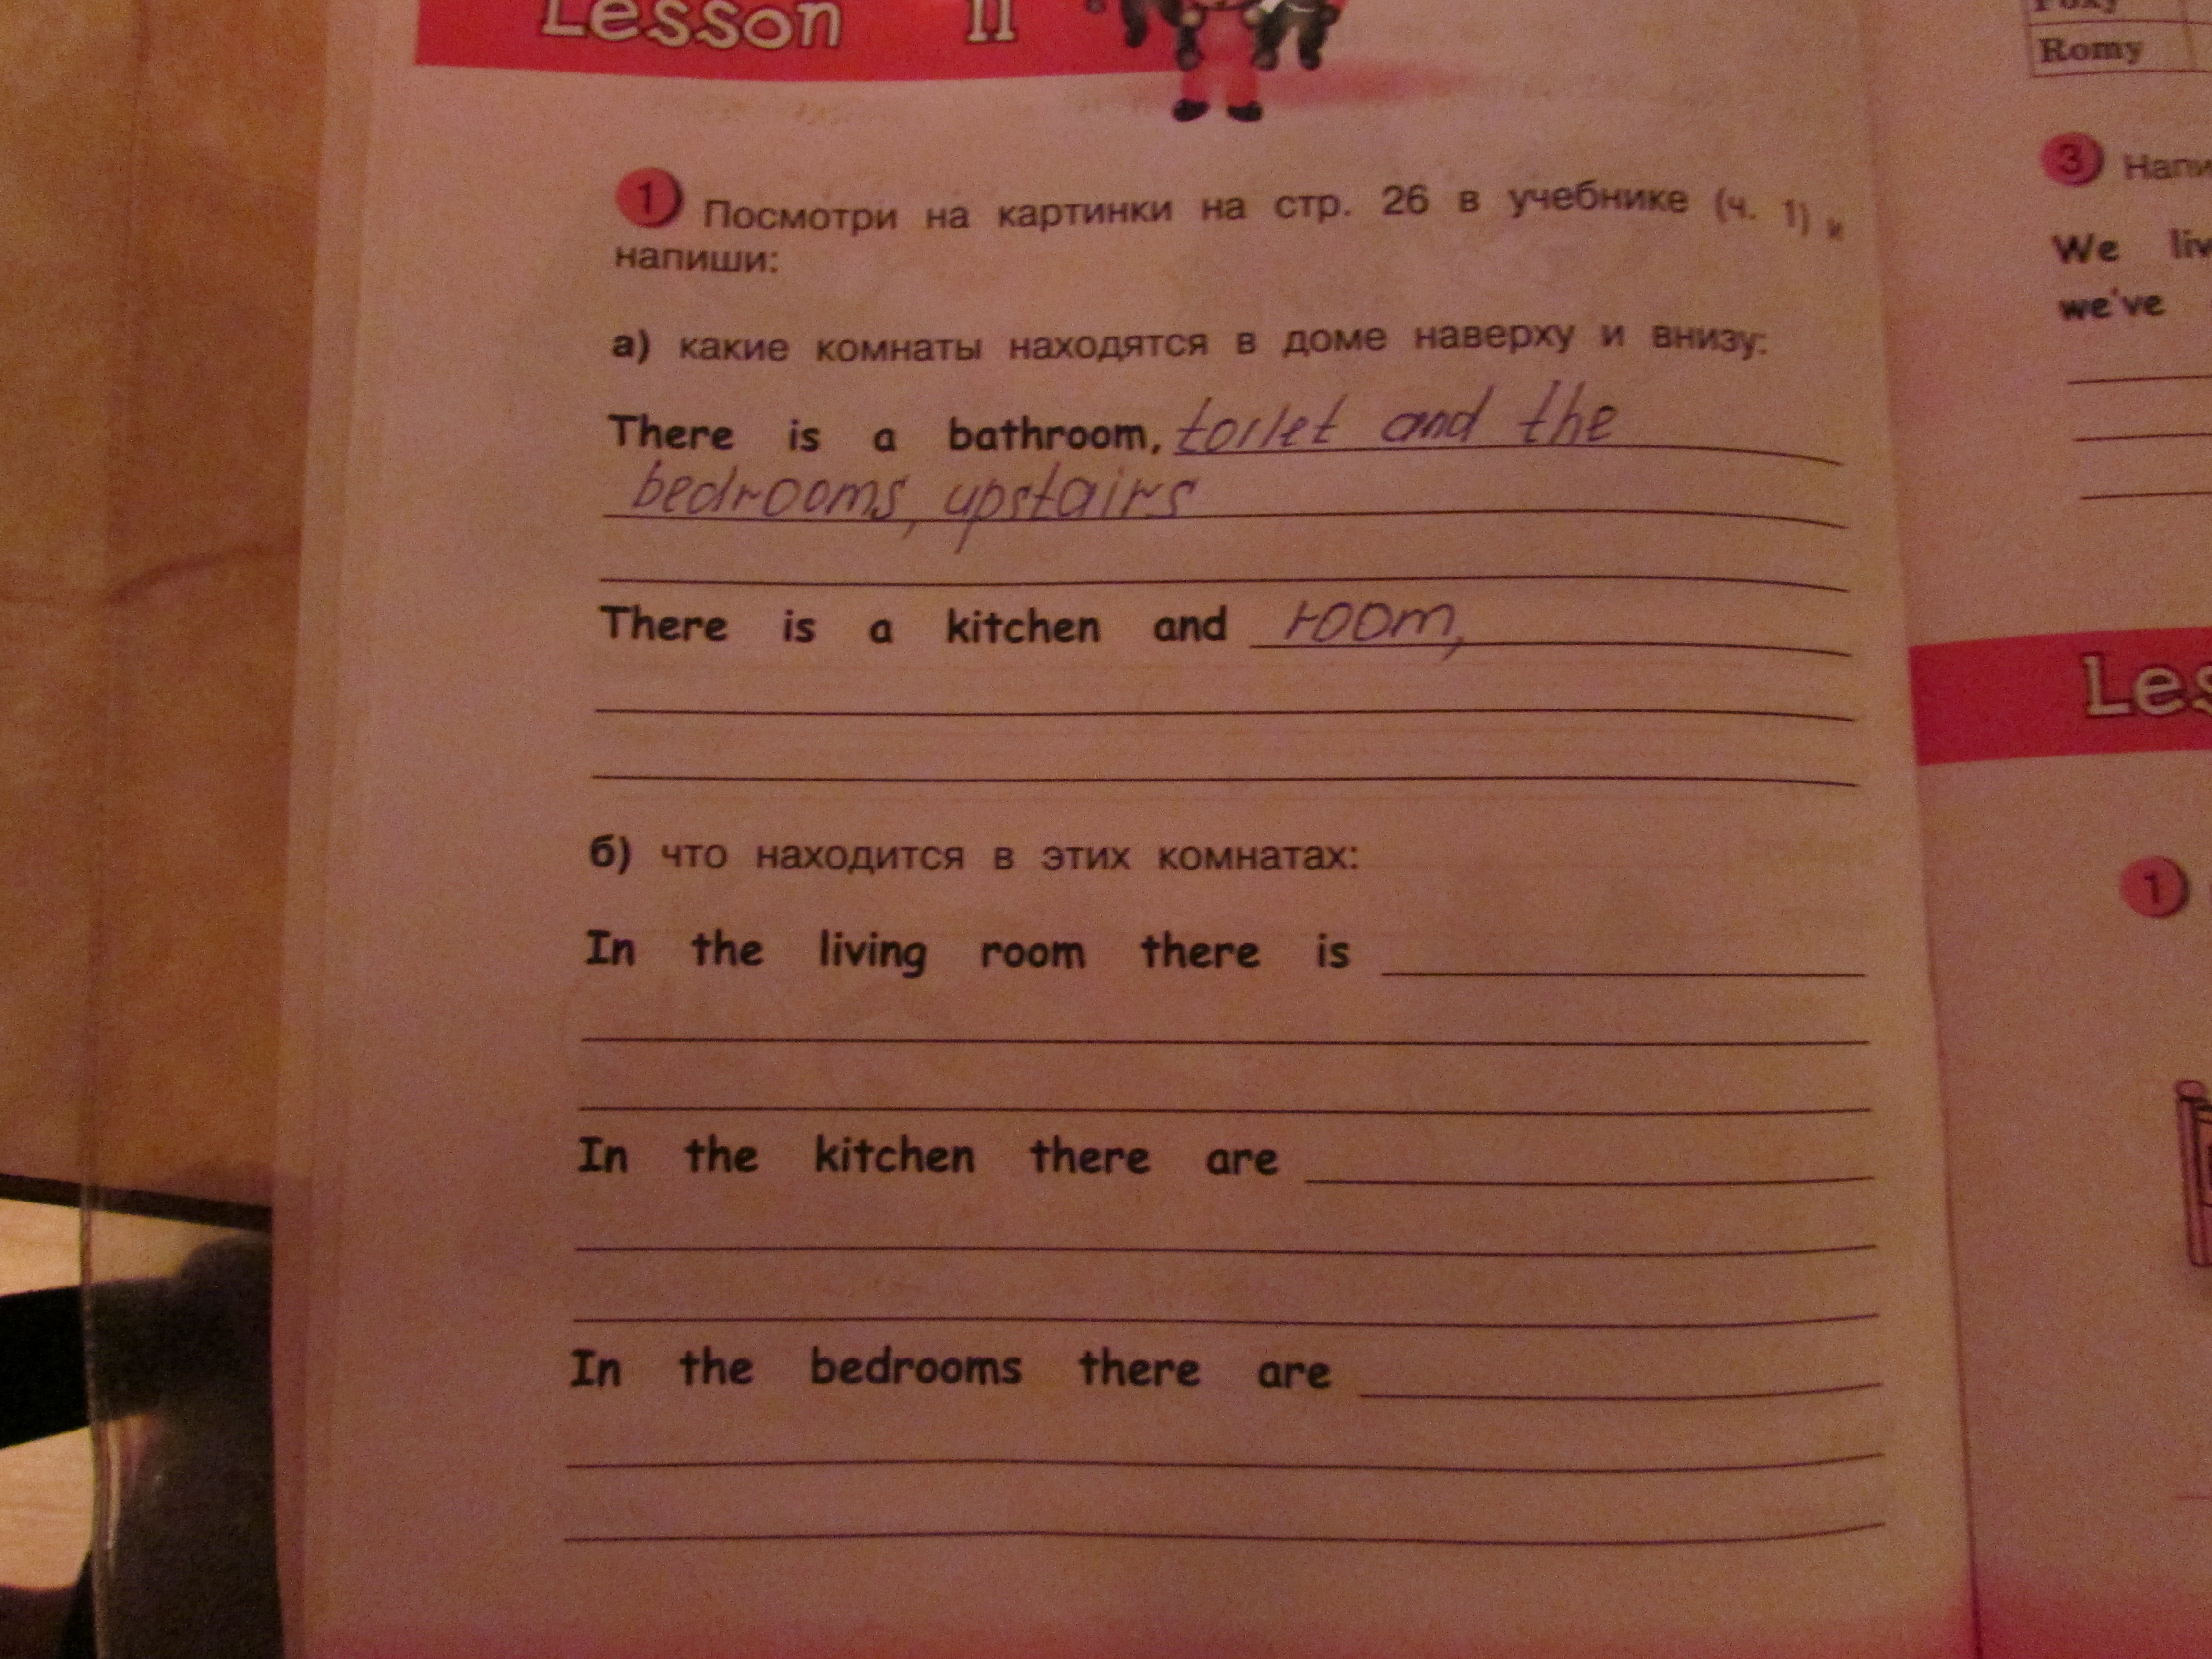 Lesson 11
1 Посмотри на картинки на стр. 26 в учебнике (ч. 1) и
напиши:
а) какие комнаты находятся в доме наверху и внизу:
There is a bathroom, toilet and the
bedrooms, upstairs
There is a kitchen and room,
б) что находится в этих комнатах:
In the living room there is
In the kitchen there are
In the bedrooms there are
Romy
3
We
we've
1